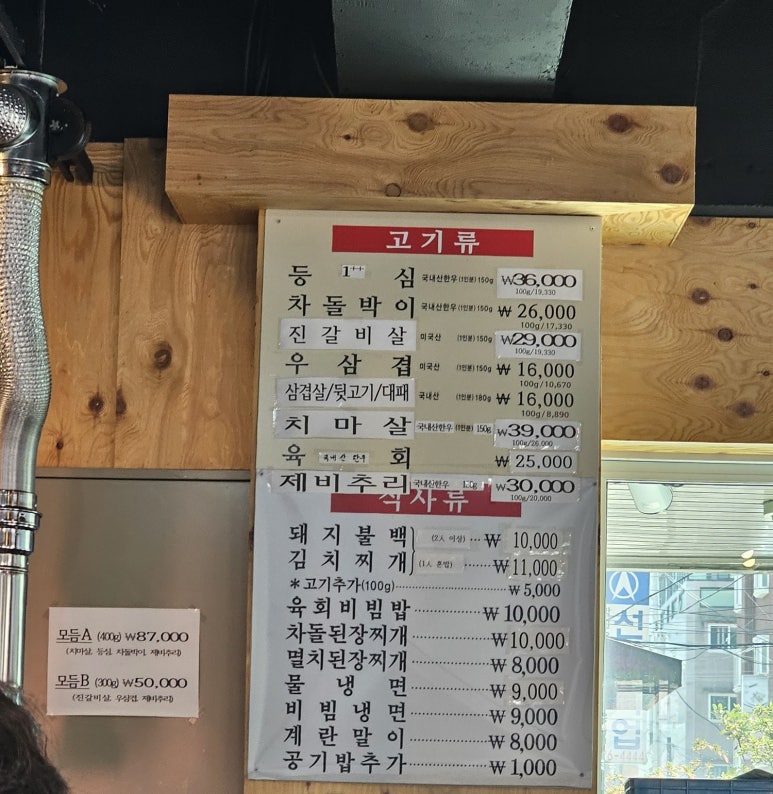 고기류
등 1++ 심 국내산한우 (1인분) 150g ₩36,000
100g/19,330
차돌박이 국내산한우 (1인분) 150g ₩ 26,000
100g/17,330
진갈비살 미국산 (1인분) 150g ₩29,000
100g/19,330
우삼겹 미국산 (1인분) 150g ₩ 16,000
100g/10,670
삼겹살/뒷고기/대패 국내산 (1인분) 180g ₩ 16,000
100g/8,890
치마살 국내산한우 (1인분) 150g ₩39,000
100g/26,000
육 국내산 한우 회 ₩ 25,000
제비추리 국내산한우 ₩30,000
100g/20,000
식사류
돼지불백 (2人 이상) ₩ 10,000
김치찌개 (1人 혼밥) ₩11,000
*고기추가(100g) ₩ 5,000
육회비빔밥 ₩ 10,000
차돌된장찌개 ₩10,000
멸치된장찌개 ₩ 8,000
물냉면 ₩ 9,000
비빔냉면 ₩ 9,000
계란말이 ₩ 8,000
공기밥추가 ₩ 1,000
모듬A (400g) ₩87,000
(치마살, 등심, 차돌박이, 제비추리)
모듬B (300g) ₩50,000
(진갈비살, 우삼겹, 제비추리)
선
입